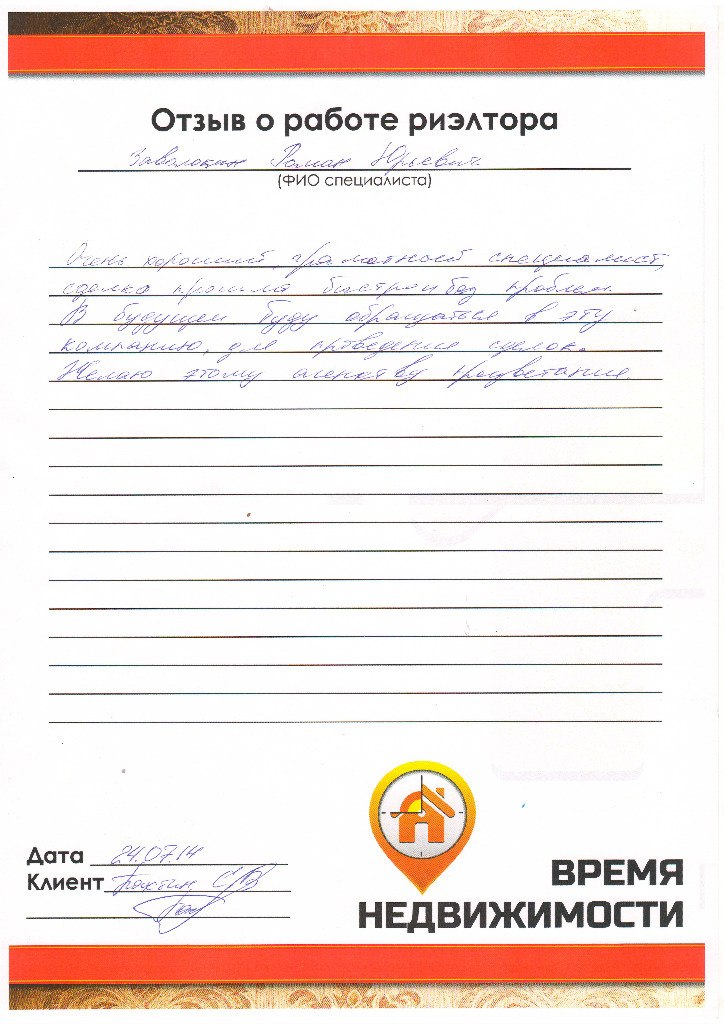 Отзыв о работе риэлтора
Заволокин Роман Юрьевич
(ФИО специалиста)
Очень хороший, грамотный специалист,
сделка прошла быстро и без проблем.
В будущем буду обращаться в эту
компанию, для проведения сделок.
Желаю этому агентству процветания.
Дата 24.07.14
Клиент
ВРЕМЯ
НЕДВИЖИМОСТИ